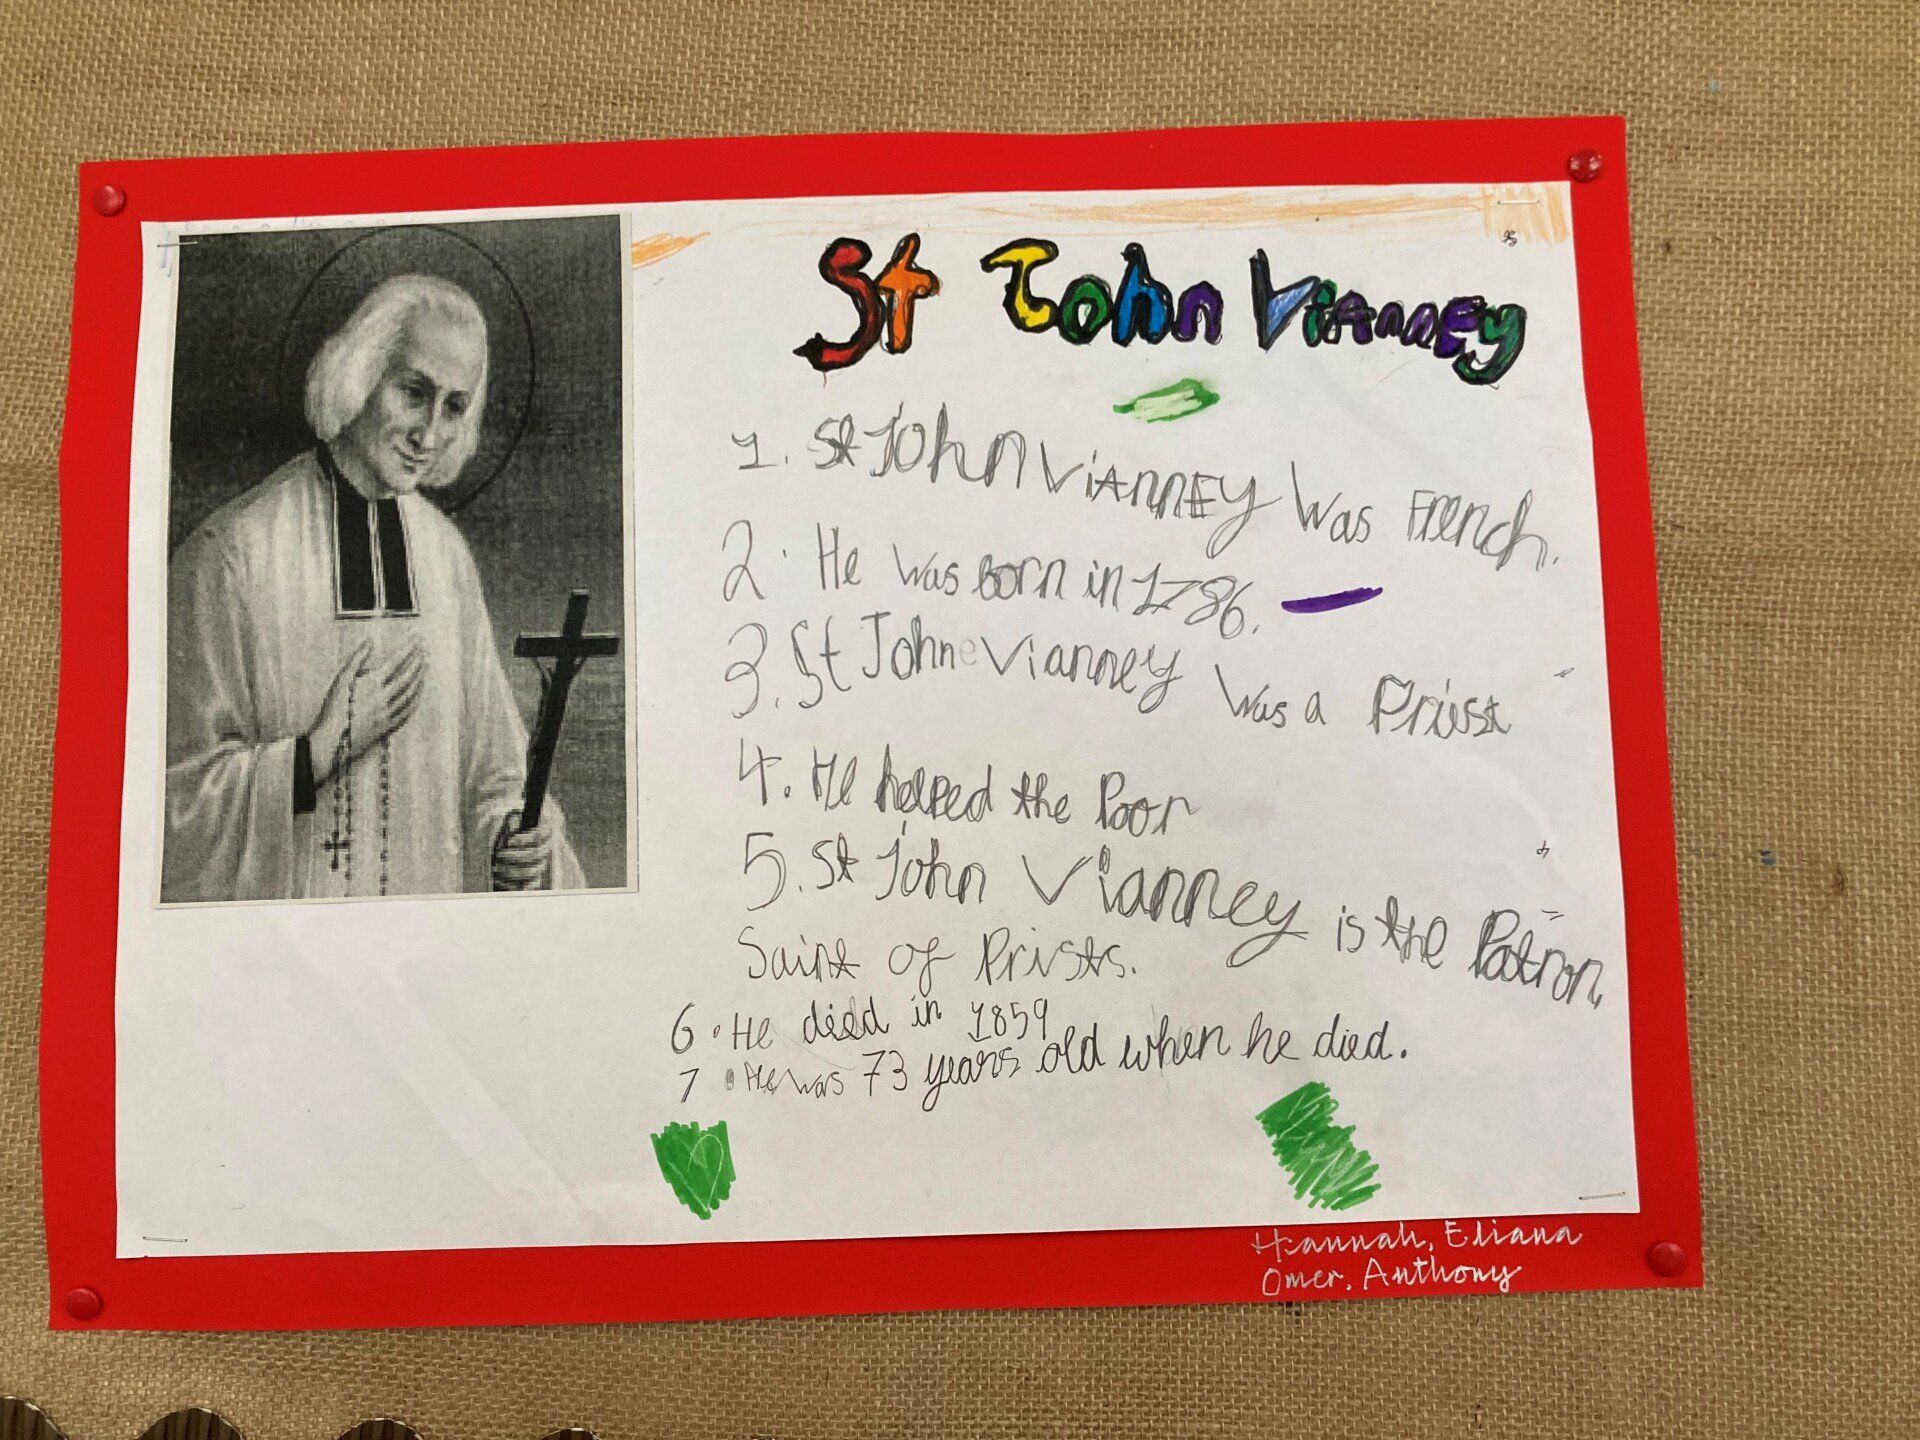 St John Vianney
1. St John Vianney Was French.
2. He was Born in 1786.
3. St John Vianney was a Priest
4. He helped the Poor
5. St John Vianney is the Patron
Saint of Prists.
6. He died in 1859
7. He was 73 years old when he died.
Hannah, Eliana
Omer, Anthony